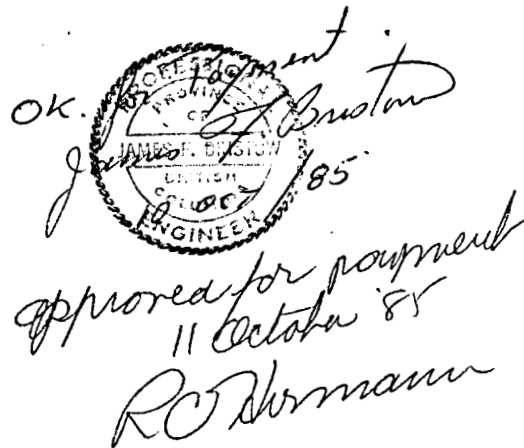 OK. for payment.
James F Bristow
Oct /85
PROFESSIONAL
PROVINCE
OF
JAMES F. BRISTOW
BRITISH
ENGINEER
approved for payment
11 October '85